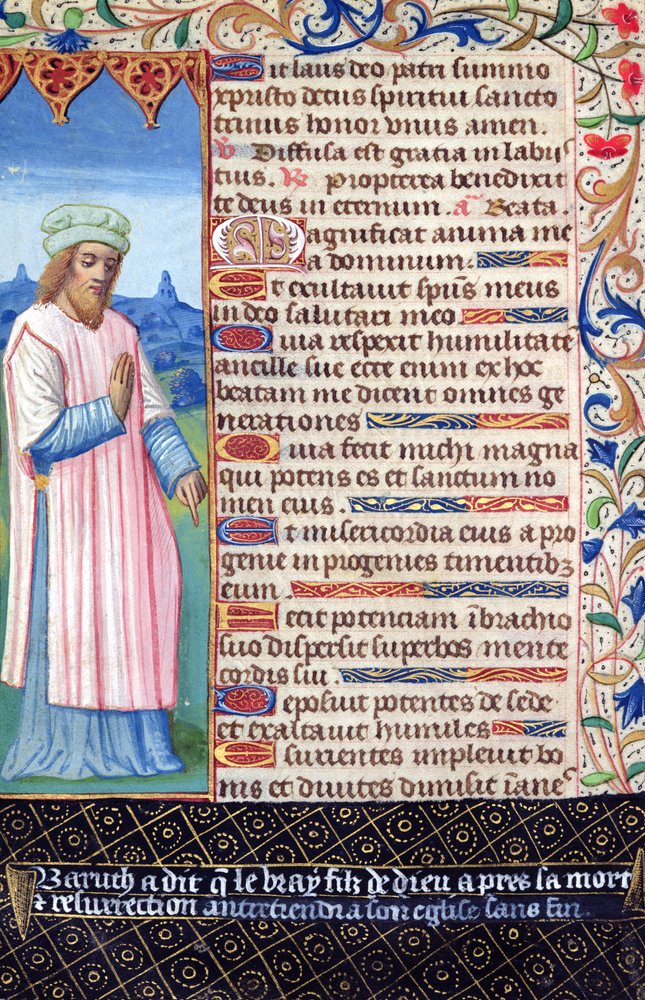 Sit laus deo patri summo
xpristo decus spiritui sancto
trinus honor vnus amen.
V Diffusa est gratia in labiis
tuis. R Propterea benedixit
te deus in eternum. a Beata.
Magnificat anima me
a dominum.
Et exultauit spũs meus
in deo salutari meo
Quia respexit humilitatẽ
ancille sue ecce enim ex hoc
beatam me dicent omnes ge
nerationes
Quia fecit michi magna
qui potens es et sanctum no
men eius.
Et misericordia eius a pro
genie in progenies timentibz
eum.
Fecit potenciam ĩ brachio
suo dispersit superbos mente
cordis sui.
Deposuit potentes de sede
et exaltauit humiles
Esurientes impleuit bo
nis et diuites dimisit ĩanes
Baruch a dit q̃ le vray filz de dieu apres sa mort
& resurrection antretiendra son eglise sans fin.